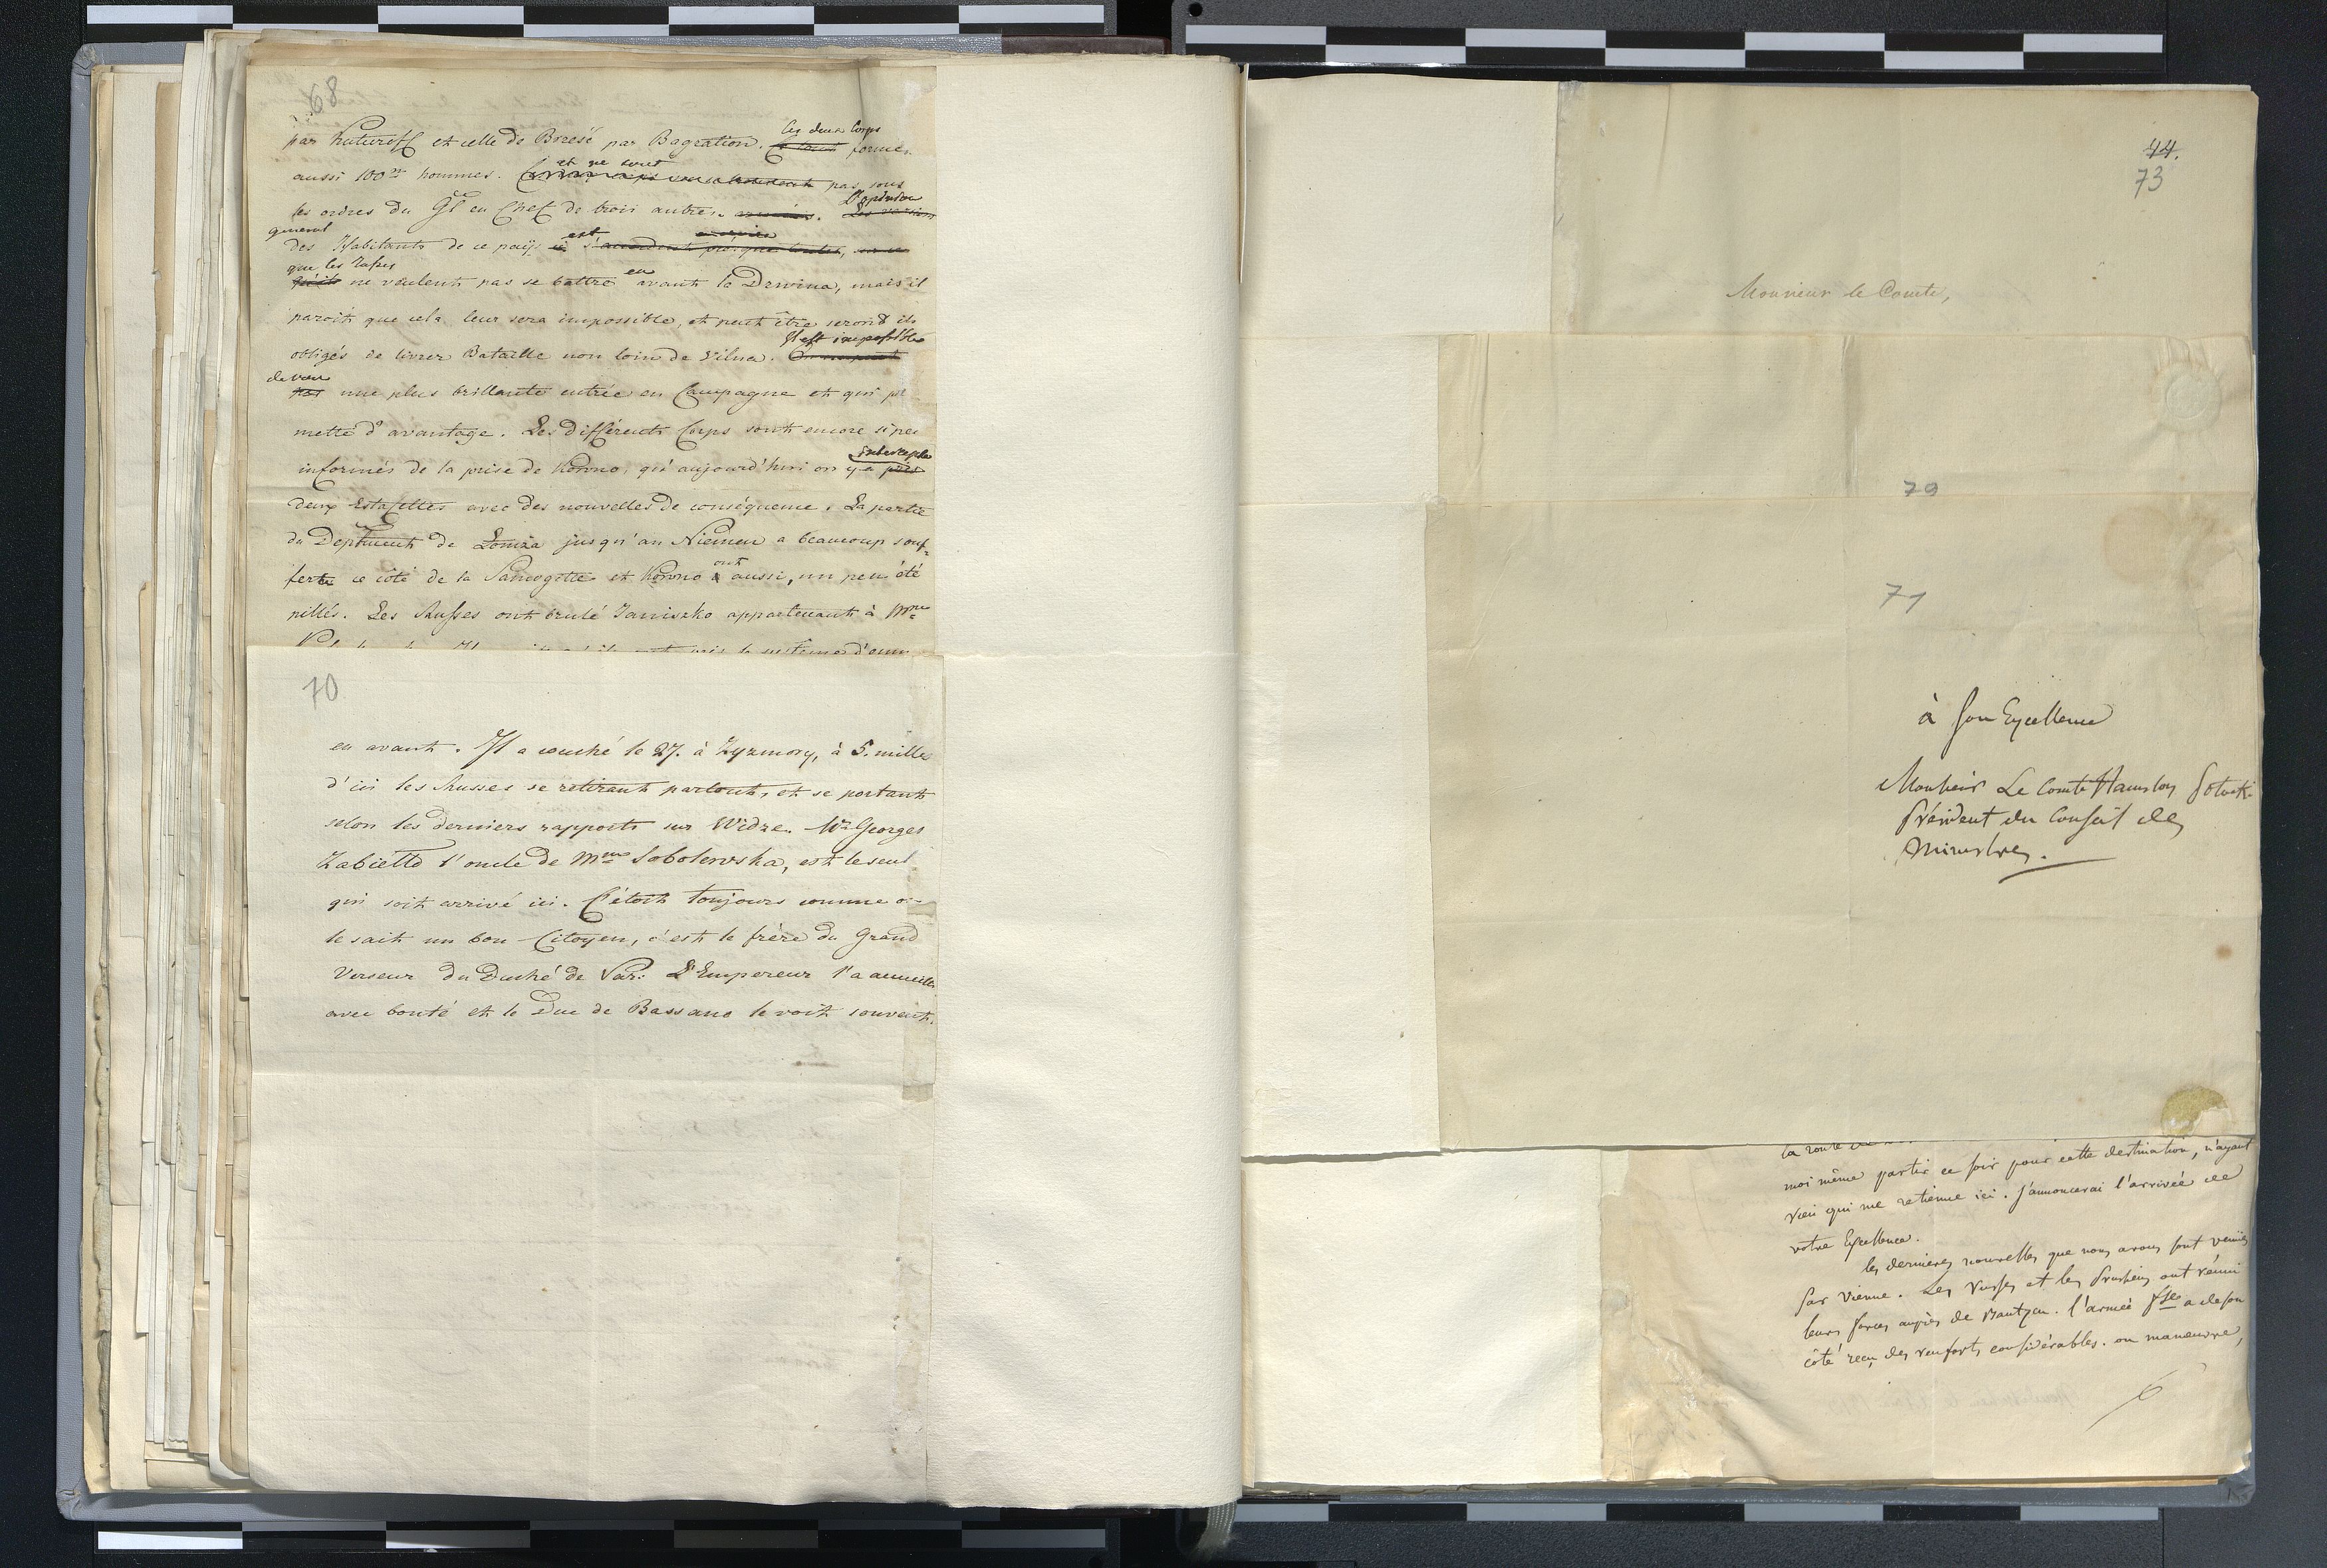 68
par Kutuzoff et celle de Brzesé par Bagration. Ces deux Corps forme
aussi 100m hommes. et ne sont pas sous
les ordres du Gl en Chef de trois autres. L'opinion
general
des Habitants de ce pays est s'accordent présque toutes,
que les Russes
qu'ils ne veulent pas se battre en avant la Dzwina, mais il
paroit que cela leur sera impossible, et peut être seront ils
obligés de livrer Bataille non loin de Vilna. Il est impossible
de voir
pas une plus brillante entrée en Campagne et qui pr
mette d'avantage. Les différents Corps sont encore si peu
informés de la prise de Kowno, qu'aujourd'hui on y a intercepté pris
deux Estafettes avec des nouvelles de conséquence. La partie
du Deptment de Lomza jusqu'au Niemen a beaucoup souf=
ferte ce côté de la Samogitie et Kowno ont aussi, un peu été
pillés. Les Russes ont brulé Janiszko appartenant à Mme
70
en avant. Il a couché le 27. à Zyzmory, à 5. milles
d'ici les Russes se retirant partout, et se portant
selon les derniers rapports sur Widze. Mr Georges
Zabiello l'oncle de Mme Sobolewska, est le seul
qui soit arrivé ici. C'étoit toujours comme on
le sait un bon Citoyen, c'est le frère du Grand
Verseur du Duché de Var: L'Empereur l'a accueilli
avec bonté et le Duc de Bassano le voit souvent.
74.
73
Monsieur le Comte,
79
71
à Son Excellence
Monsieur Le Comte Stanislas Potocki
Président du Conseil des
Ministres.
la route
moi même partir ce soir pour cette destination, n'ayant
rien qui me retienne ici. J'annoncerai l'arrivée de
votre Excellence.
les dernieres nouvelles que nous avons sont venues
par Vienne. Les Russes et les Prussiens ont réuni
leurs forces auprès de Bautzen. l'armée fse a de son
côté reçu des renforts considérables. on manœuvre,